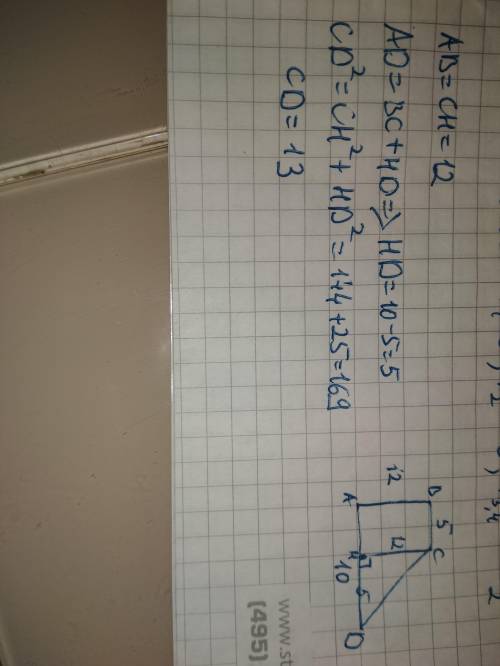 AB = CH = 12
AD = BC + HD => HD = 10 - 5 = 5
CD² = CH² + HD² = 144 + 25 = 169
CD = 13
B 5 C
12 12
A H 5 D
10
3,4
2
www.st
(495)